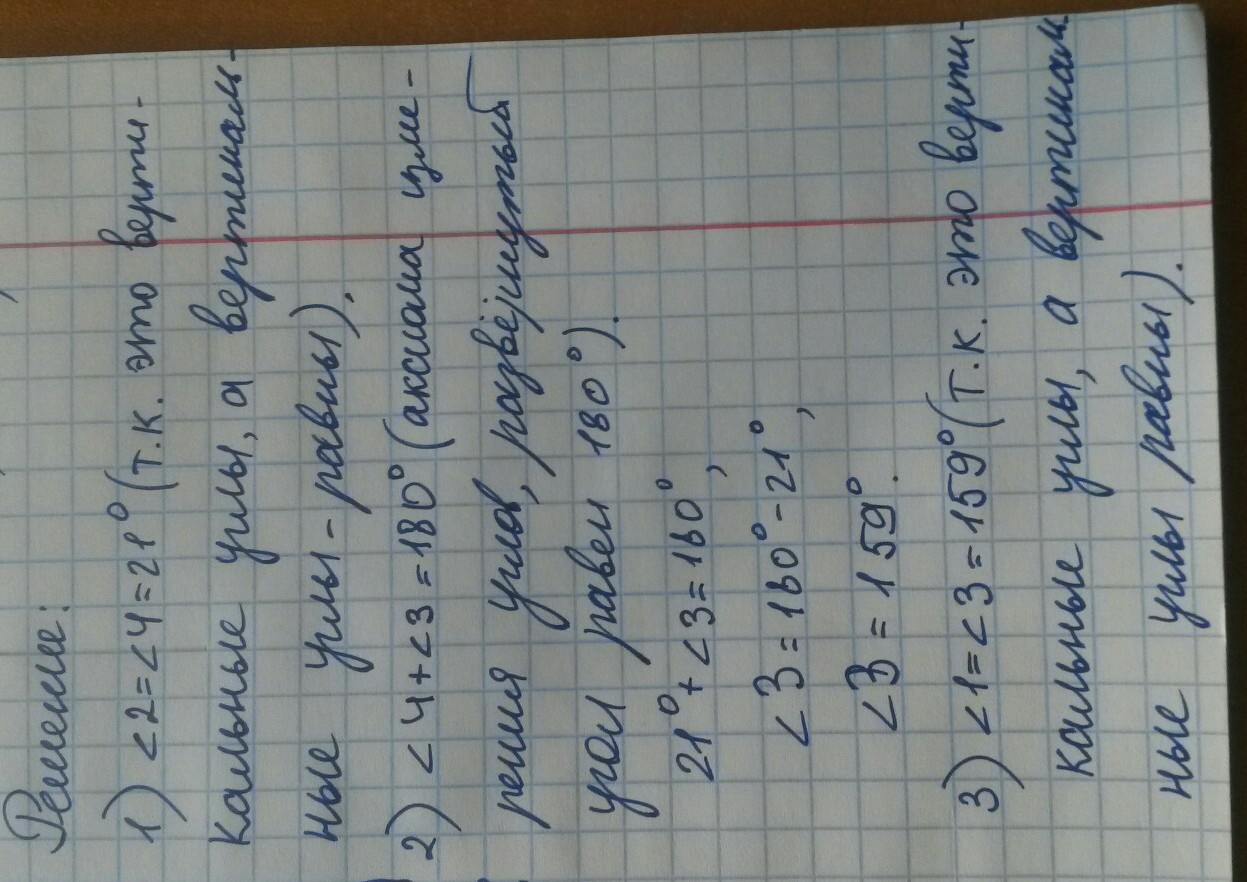 Решение:
1) <2=<4=21° (т.к. это верти-
кальные углы, а вертикаль-
ные углы - равны).
2) <4+<3=180° (аксиома изме-
рения углов, развёрнутый
угол равен 180°).
21°+<3=180°,
<3=180°-21°,
<3=159°.
3) <1=<3=159° (т.к. это верти-
кальные углы, а вертикаль
ные углы равны).